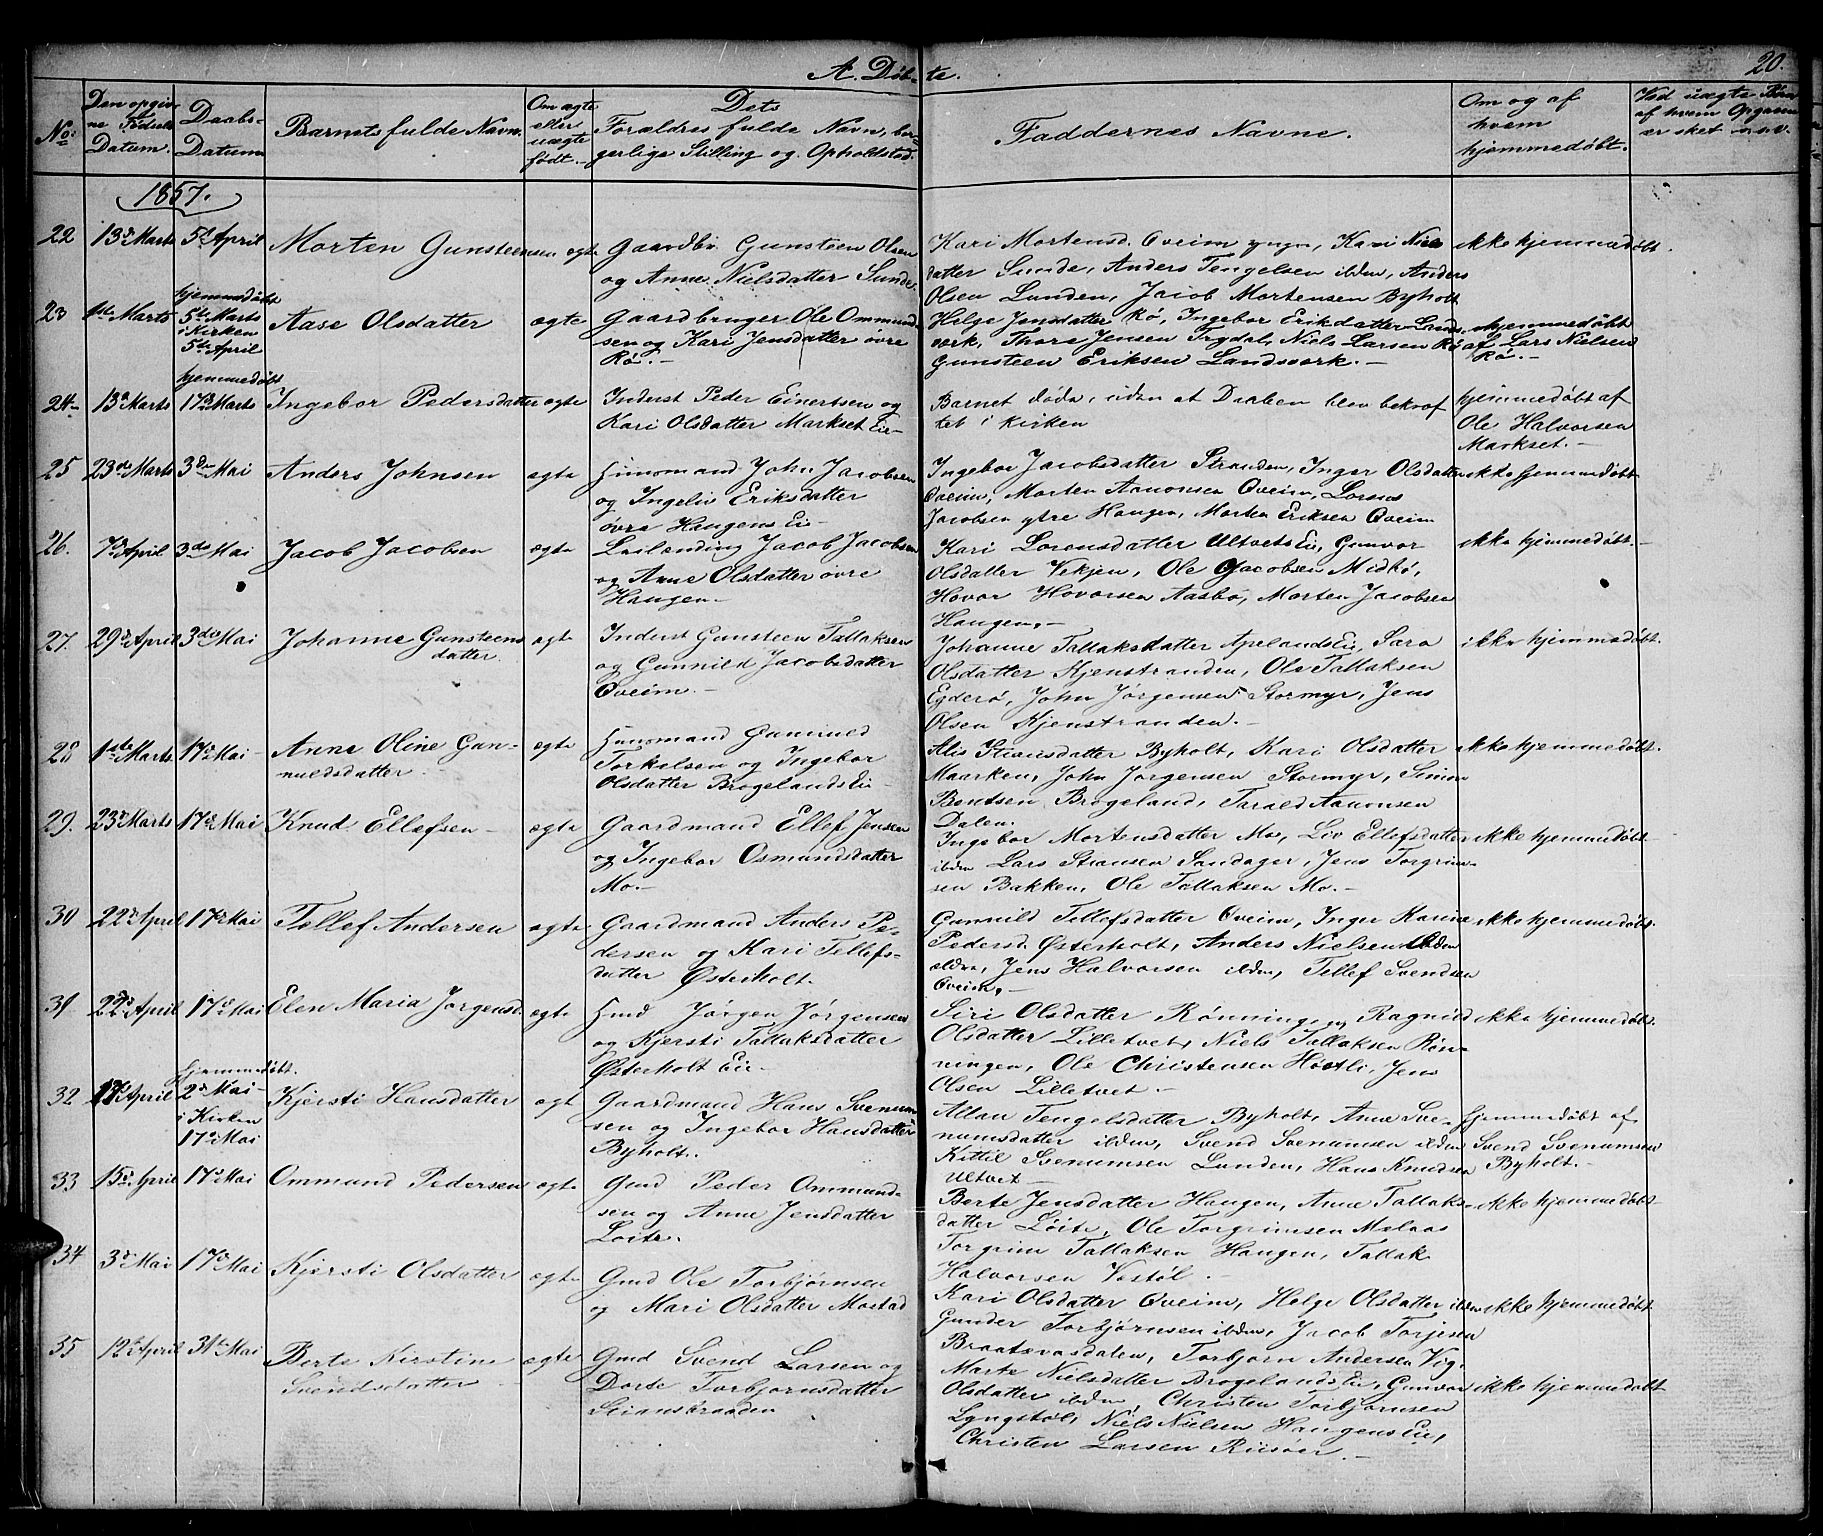 A. Døbte.
20.
No:
Den opgiv-
ne Fødsels
Datum.
Daabs-
Datum
Barnets fulde Navn.
Om ægte
eller
uægte
født.-
Dets
Forældres fulde Navn, bor-
gerlige Stilling og Opholdsted.
Faddernes Navne.
Om og af
hvem
hjemmedøbt.
Ved uægte Børn
af hvem Opgaven
er sket o.s.v.
1857.
22
13de Marts
5te April
Morten Gunsteensen
ægte
Gaardbr. Gunsteen Olsen
og Anne Nielsdatter Sunde.
Kari Mortensd. Oveim yngre, Kari Niels
datter Sunde, Anders Tengelsen ibden, Anders
Olsen Lunden, Jacob Mortensen Byholt
ikke hjemmedøbt.
23
1ste Marts
hjemmedøbt
5te Marts
i Kirken
5te April
Aase Olsdatter
ægte
Gaardbruger Ole Ommund-
sen og Kari Jensdatter øvre
Rø.-
Helge Jensdatter Rø, Ingebor Eriksdatter Lands-
verk, Thore Jensen Trydal, Niels Larsen Rø
Gunsteen Eriksen Landsverk.-
hjemmedøbt
af Lars Nielsen
Rø.-
24-
13de Marts
hjemmedøbt
17de Marts
Ingebor Pedersdatter
ægte
Inderst Peder Einertsen og
Kari Olsdatter Markset Eie-
Barnet døde, uden at Daaben blev bekræf
tet i Kirken
hjemmedøbt af
Ole Halvorsen
Markset.-
25
23de Marts
3die Mai
Anders Johnsen
ægte
Huusmand John Jacobsen
og Ingeliv Eriksdatter
øvre Haugens Eie-
Ingebor Jacobsdatter Stranden, Inger Olsdatter
Oveim, Morten Aanonsen Oveim, Lorens
Jacobsen ytre Haugen, Morten Eriksen Oveim
ikke hjemmedøbt
26.
7de April
3die Mai
Jacob Jacobsen
ægte
Leilænding Jacob Jacobsen
og Anne Olsdatter øvre
Haugen-
Kari Lorensdatter Ultvets Eie, Gunvor
Olsdatter Vekjen, Ole Jacobsen Midbø,
Hovor Hovorsen Aasbø, Morten Jacobsen
Haugen.-
ikke hjemmedøbt.-
27.
29de April
3die Mai
Johanne Gunsteens
datter.
ægte
Inderst Gunsteen Tallaksen
og Gunnild Jacobsdatter
Oveim.-
Johanne Tallaksdatter Apelands Eie, Sara
Olsdatter Kjenstranden, Ole Tallaksen
Egderø, John Jørgensen Stormyr, Jens
Olsen Kjenstranden.-
ikke hjemmedøbt.
28
1ste Marts
17de Mai-
Anne Oline Gun-
nuldsdatter.-
ægte
Huusmand Gunnuld
Torkelsen og Ingebor
Olsdatter Brogelands Eie-
Alis Stiansdatter Byholt, Kari Olsdatter
Maarken, John Jørgensen Stormyr, Simon
Bentsen Brogeland, Tarald Aanonsen
Dalen.
ikke hjemmedøbt.
29.
23de Marts
17de Mai
Knud Ellefsen-
ægte
Gaardmand Ellef Jensen
og Ingebor Osmundsdatter
Mo.-
Ingebor Mortensdatter Mo, Liv Ellefsdatter
ibden Lars Stiansen Sandager, Jens Torgrim-
sen Bakken, Ole Tallaksen Mo.-
ikke hjemmedøbt.
30
22de April
17de Mai
Tellef Andersen
ægte
Gaardmand Anders Pe-
dersen og Kari Tellefs-
datter Østerholt.
Gunnild Tellefsdatter Oveim, Inger Karine
Pedersd. Østerholt, Anders Nielsen ibden
ældre, Jens Halvorsen ibden, Tellef Svendsen
Oveim.-
ikke hjemmedøbt.
31
22de April
17de Mai
Elen Maria Jørgensd.
ægte
Hmd Jørgen Jørgensen
og Kjersti Tallaksdatter
Østerholt Eie-
Siri Olsdatter Rønningen, Ragnild
Olsdatter Lilletvet, Niels Tallaksen Røn-
ningen, Ole Christensen Høstli, Jens
Olsen Lilletvet.-
ikke hjemmedøbt.
32
17de April
hjemmedøbt.
2de Mai-
i Kirken
17de Mai
Kjersti Hansdatter
ægte
Gaardmand Hans Svenum-
sen og Ingebor Hansdatter
Byholt.
Allau Tengelsdatter Byholt, Anne Sve-
numsdatter ibden, Svend Svenumsen ibden
Kittil Svenumsen Lunden, Hans Knudsen
Ultvet-
hjemmedøbt af
Svend Svenumsen
Byholt.-
33
15de April
17de Mai
Ommund Pedersen
ægte
Gmd Peder Ommund-
sen og Anne Jensdatter
Løite.
Berte Jensdatter Haugen, Anne Tallaks-
datter Løite, Ole Torgrimsen Melaas
Torgrim Tallaksen Haugen, Tallak
Halvorsen Vestøl.-
ikke hjemmedøbt
34
3de Mai
17de Mai
Kjersti Olsdatter
ægte
Gmd Ole Torbjørnsen
og Mari Olsdatter Mostad
Kari Olsdatter Oveim, Helge Olsdatter ibden
Gunder Torbjørnsen ibden, Jacob Torjesen
Braatevasdalen, Torbjørn Andersen Vig.
ikke hjemmedøbt
35
12te April
31te Mai
Berte Kirstine
Svendsdatter-
ægte
Gmd Svend Larsen og
Dorte Torbjørnsdatter
Stiansbraaden
Marte Nielsdatter Brogelands Eie, Gunvor
Olsdatter ibden, Christen Torbjørnsen
Lyngstøl, Niels Nielsen Haugens Eie,
Christen Larsen Riisøer.-
ikke hjemmedøbt